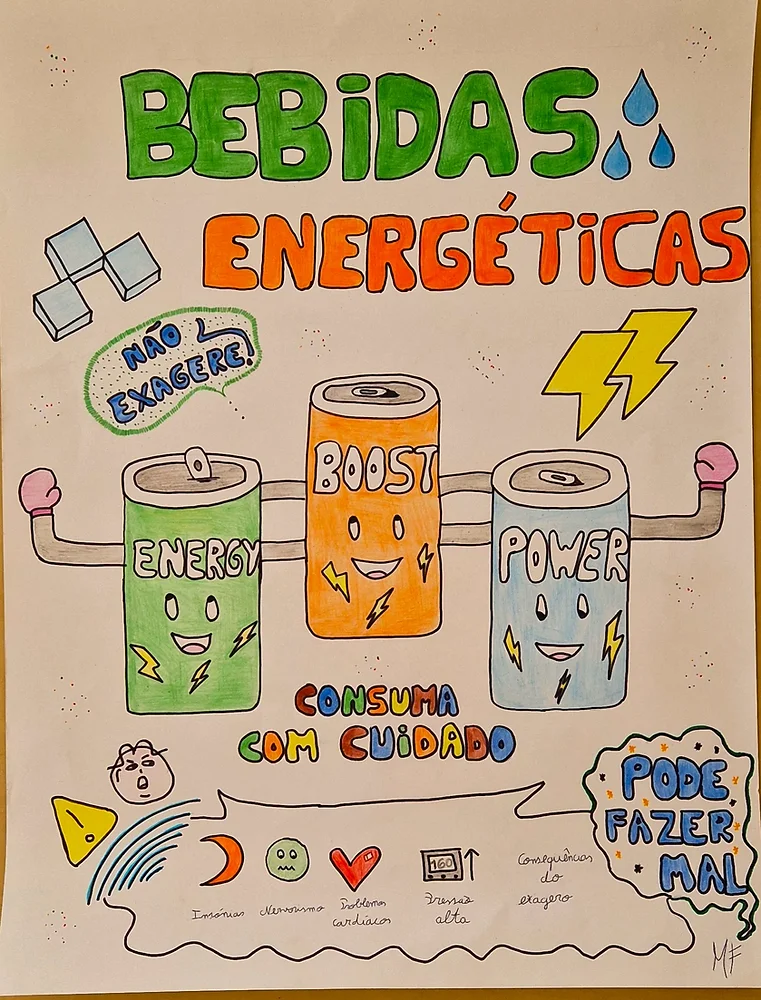 BEBiDAS
ENERGÉTiCAS
NÃO
EXAGERE!
BOOST
ENERGY
POWER
CONSUMA
COM CUiDADO
PODE
FAZER
MAL
160
Insónias
Nervosismo
Problemas
cardíacos
Pressão
alta
Consequências
do
exagero
MF